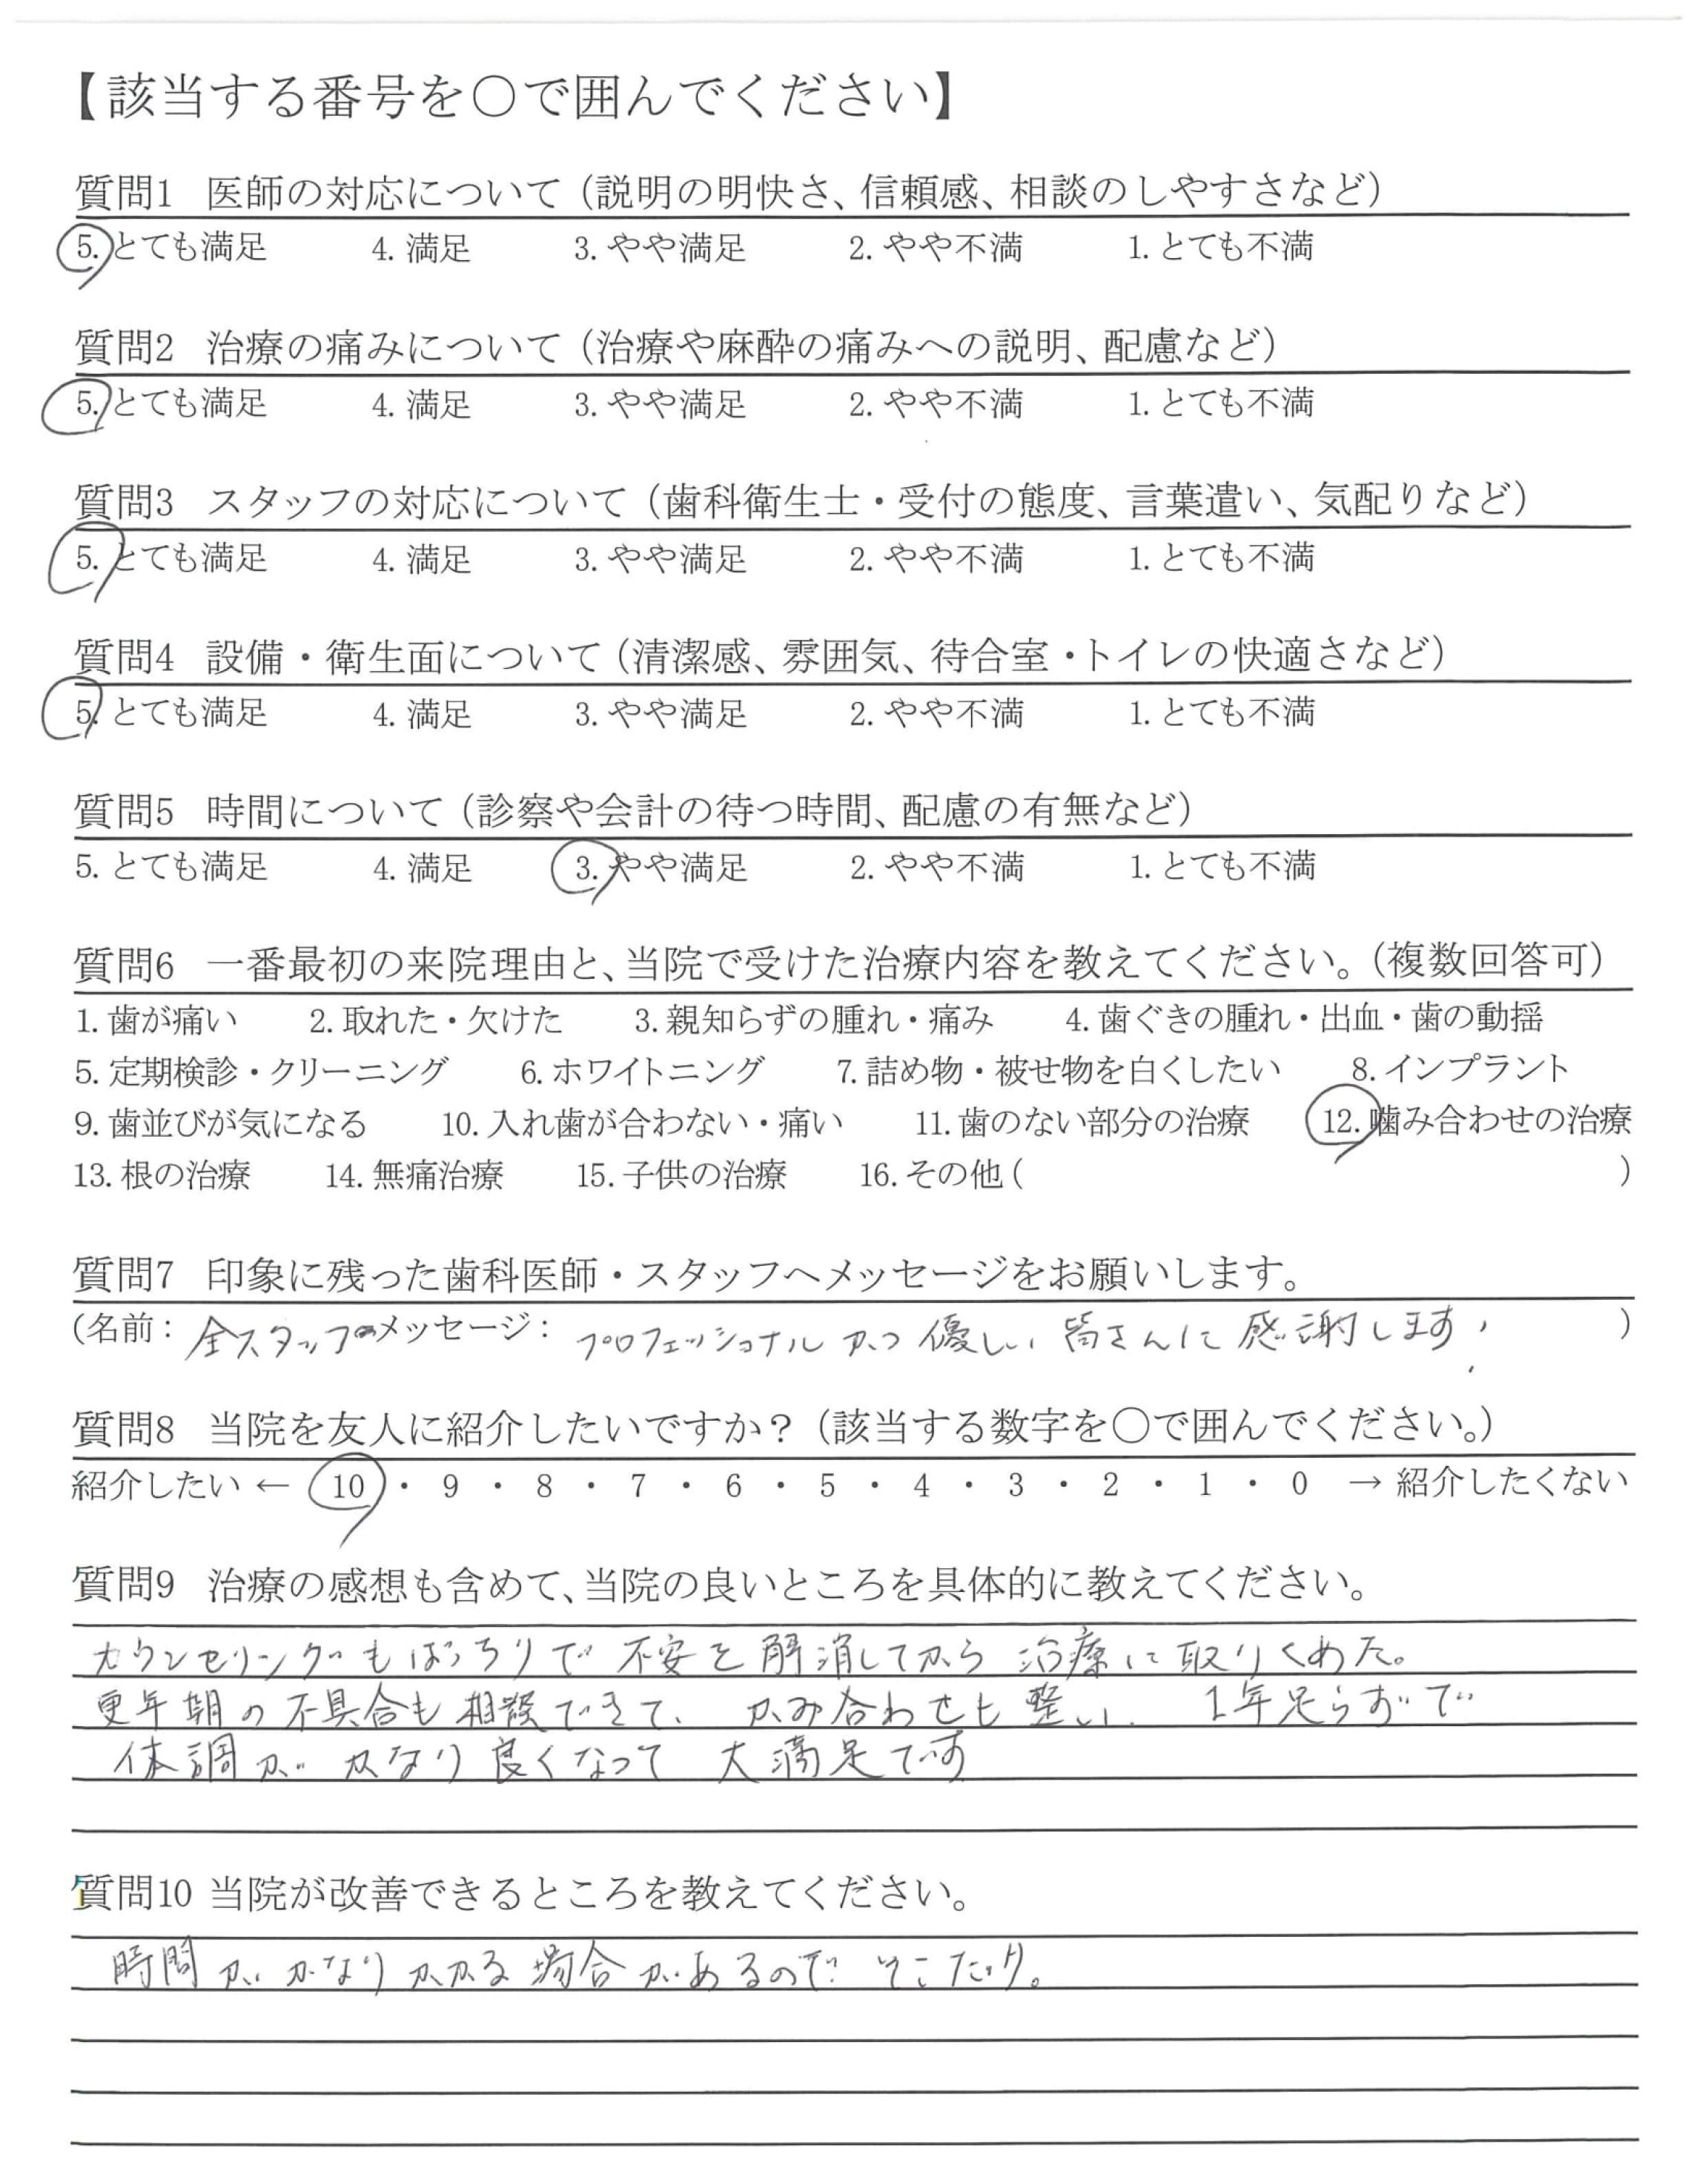 【該当する番号を〇で囲んでください】
質問1 医師の対応について（説明の明快さ、信頼感、相談のしやすさなど）
5. とても満足 4. 満足 3. やや満足 2. やや不満 1. とても不満
質問2 治療の痛みについて（治療や麻酔の痛みへの説明、配慮など）
5. とても満足 4. 満足 3. やや満足 2. やや不満 1. とても不満
質問3 スタッフの対応について（歯科衛生士・受付の態度、言葉遣い、気配りなど）
5. とても満足 4. 満足 3. やや満足 2. やや不満 1. とても不満
質問4 設備・衛生面について（清潔感、雰囲気、待合室・トイレの快適さなど）
5. とても満足 4. 満足 3. やや満足 2. やや不満 1. とても不満
質問5 時間について（診察や会計の待つ時間、配慮の有無など）
5. とても満足 4. 満足 3. やや満足 2. やや不満 1. とても不満
質問6 一番最初の来院理由と、当院で受けた治療内容を教えてください。（複数回答可）
1. 歯が痛い 2. 取れた・欠けた 3. 親知らずの腫れ・痛み 4. 歯ぐきの腫れ・出血・歯の動揺
5. 定期検診・クリーニング 6. ホワイトニング 7. 詰め物・被せ物を白くしたい 8. インプラント
9. 歯並びが気になる 10. 入れ歯が合わない・痛い 11. 歯のない部分の治療 12. 噛み合わせの治療
13. 根の治療 14. 無痛治療 15. 子供の治療 16. その他（ ）
質問7 印象に残った歯科医師・スタッフへメッセージをお願いします。
（名前：全スタッフ メッセージ：プロフェッショナルかつ優しい皆さんに感謝します！）
質問8 当院を友人に紹介したいですか？（該当する数字を〇で囲んでください。）
紹介したい ← 10 ・ 9 ・ 8 ・ 7 ・ 6 ・ 5 ・ 4 ・ 3 ・ 2 ・ 1 ・ 0 → 紹介したくない
質問9 治療の感想も含めて、当院の良いところを具体的に教えてください。
カウンセリングもばっちりで不安を解消してから治療に取りくめた。
更年期の不具合も相談できて、かみ合わせも整い、1年足らずで
体調がかなり良くなって大満足です
質問10 当院が改善できるところを教えてください。
時間がかなりかかる場合があるので そこだけ。